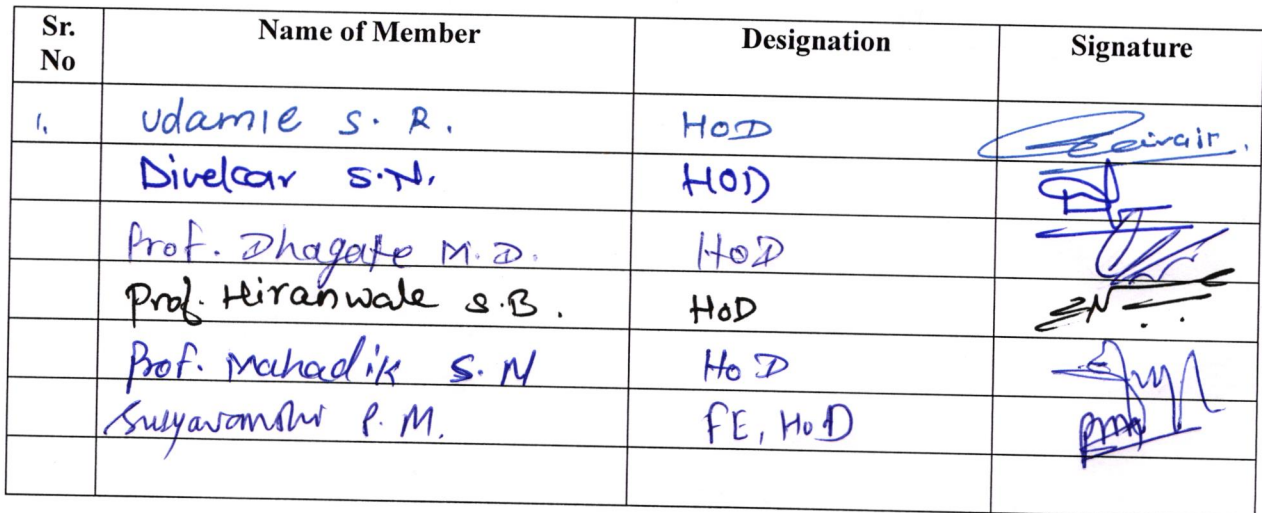 Sr. No Name of Member Designation Signature
1. Udamle S. R. HOD
Divekar S.N. HOD
Prof. Dhagate M.D. HOD
Prof. Hiranwale S.B. HOD
Prof. Mahadik S. N HOD
Suryavanshi P. M. FE, HOD